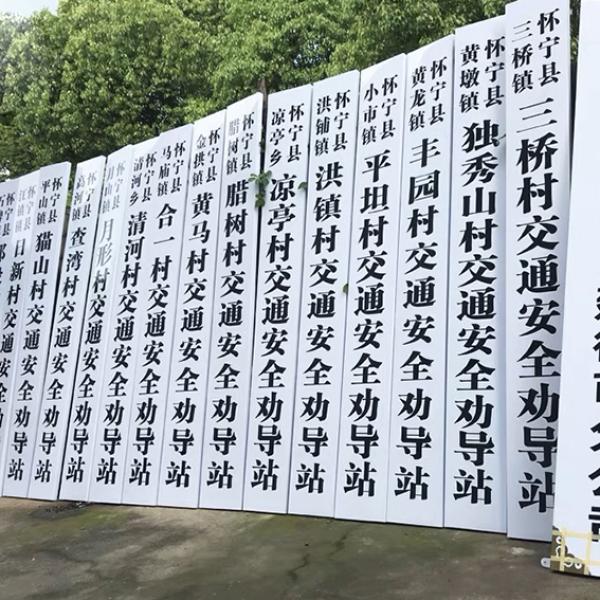 怀宁县
三桥镇
三桥村交通安全劝导站
怀宁县
黄墩镇
独秀山村交通安全劝导站
怀宁县
黄龙镇
丰园村交通安全劝导站
怀宁县
小市镇
平坦村交通安全劝导站
怀宁县
洪铺镇
洪镇村交通安全劝导站
怀宁县
凉亭乡
凉亭村交通安全劝导站
怀宁县
腊树镇
腊树村交通安全劝导站
怀宁县
金拱镇
黄马村交通安全劝导站
怀宁县
马庙镇
合一村交通安全劝导站
怀宁县
清河乡
清河村交通安全劝导站
怀宁县
月山镇
月形村交通安全劝导站
怀宁县
高河镇
查湾村交通安全劝导站
怀宁县
平山镇
猫山村交通安全劝导站
怀宁县
江镇镇
日新村交通安全劝导站
怀宁县